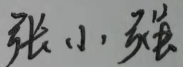 张小强